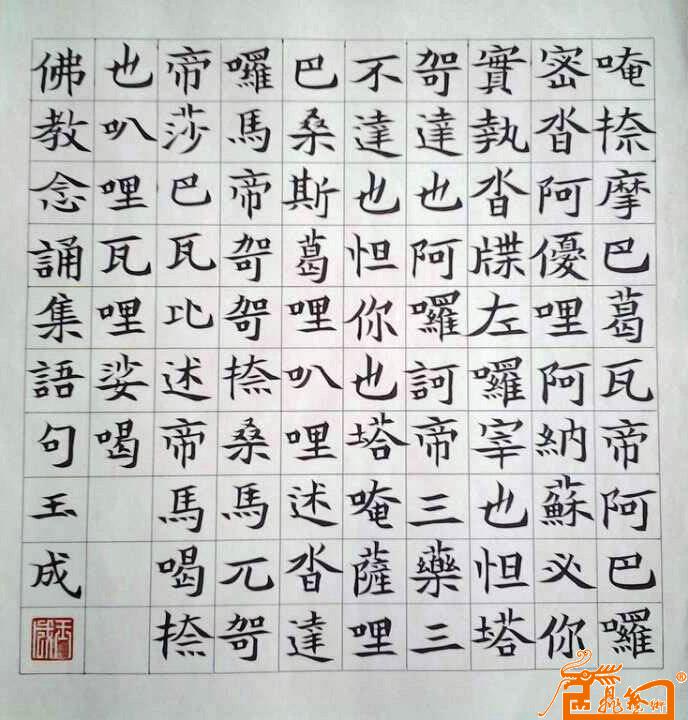 唵捺摩巴葛瓦帝阿巴囉
密沓阿優哩阿納蘇必你
實執沓牒左囉宰也怛塔
哿達也阿囉訶帝三藥三
不達也怛你也塔唵薩哩
巴桑斯葛哩叭哩述沓達
囉馬帝哿哿捺桑馬兀哿
帝莎巴瓦比述帝馬喝捺
也叭哩瓦哩娑喝
佛教念誦集語句玉成